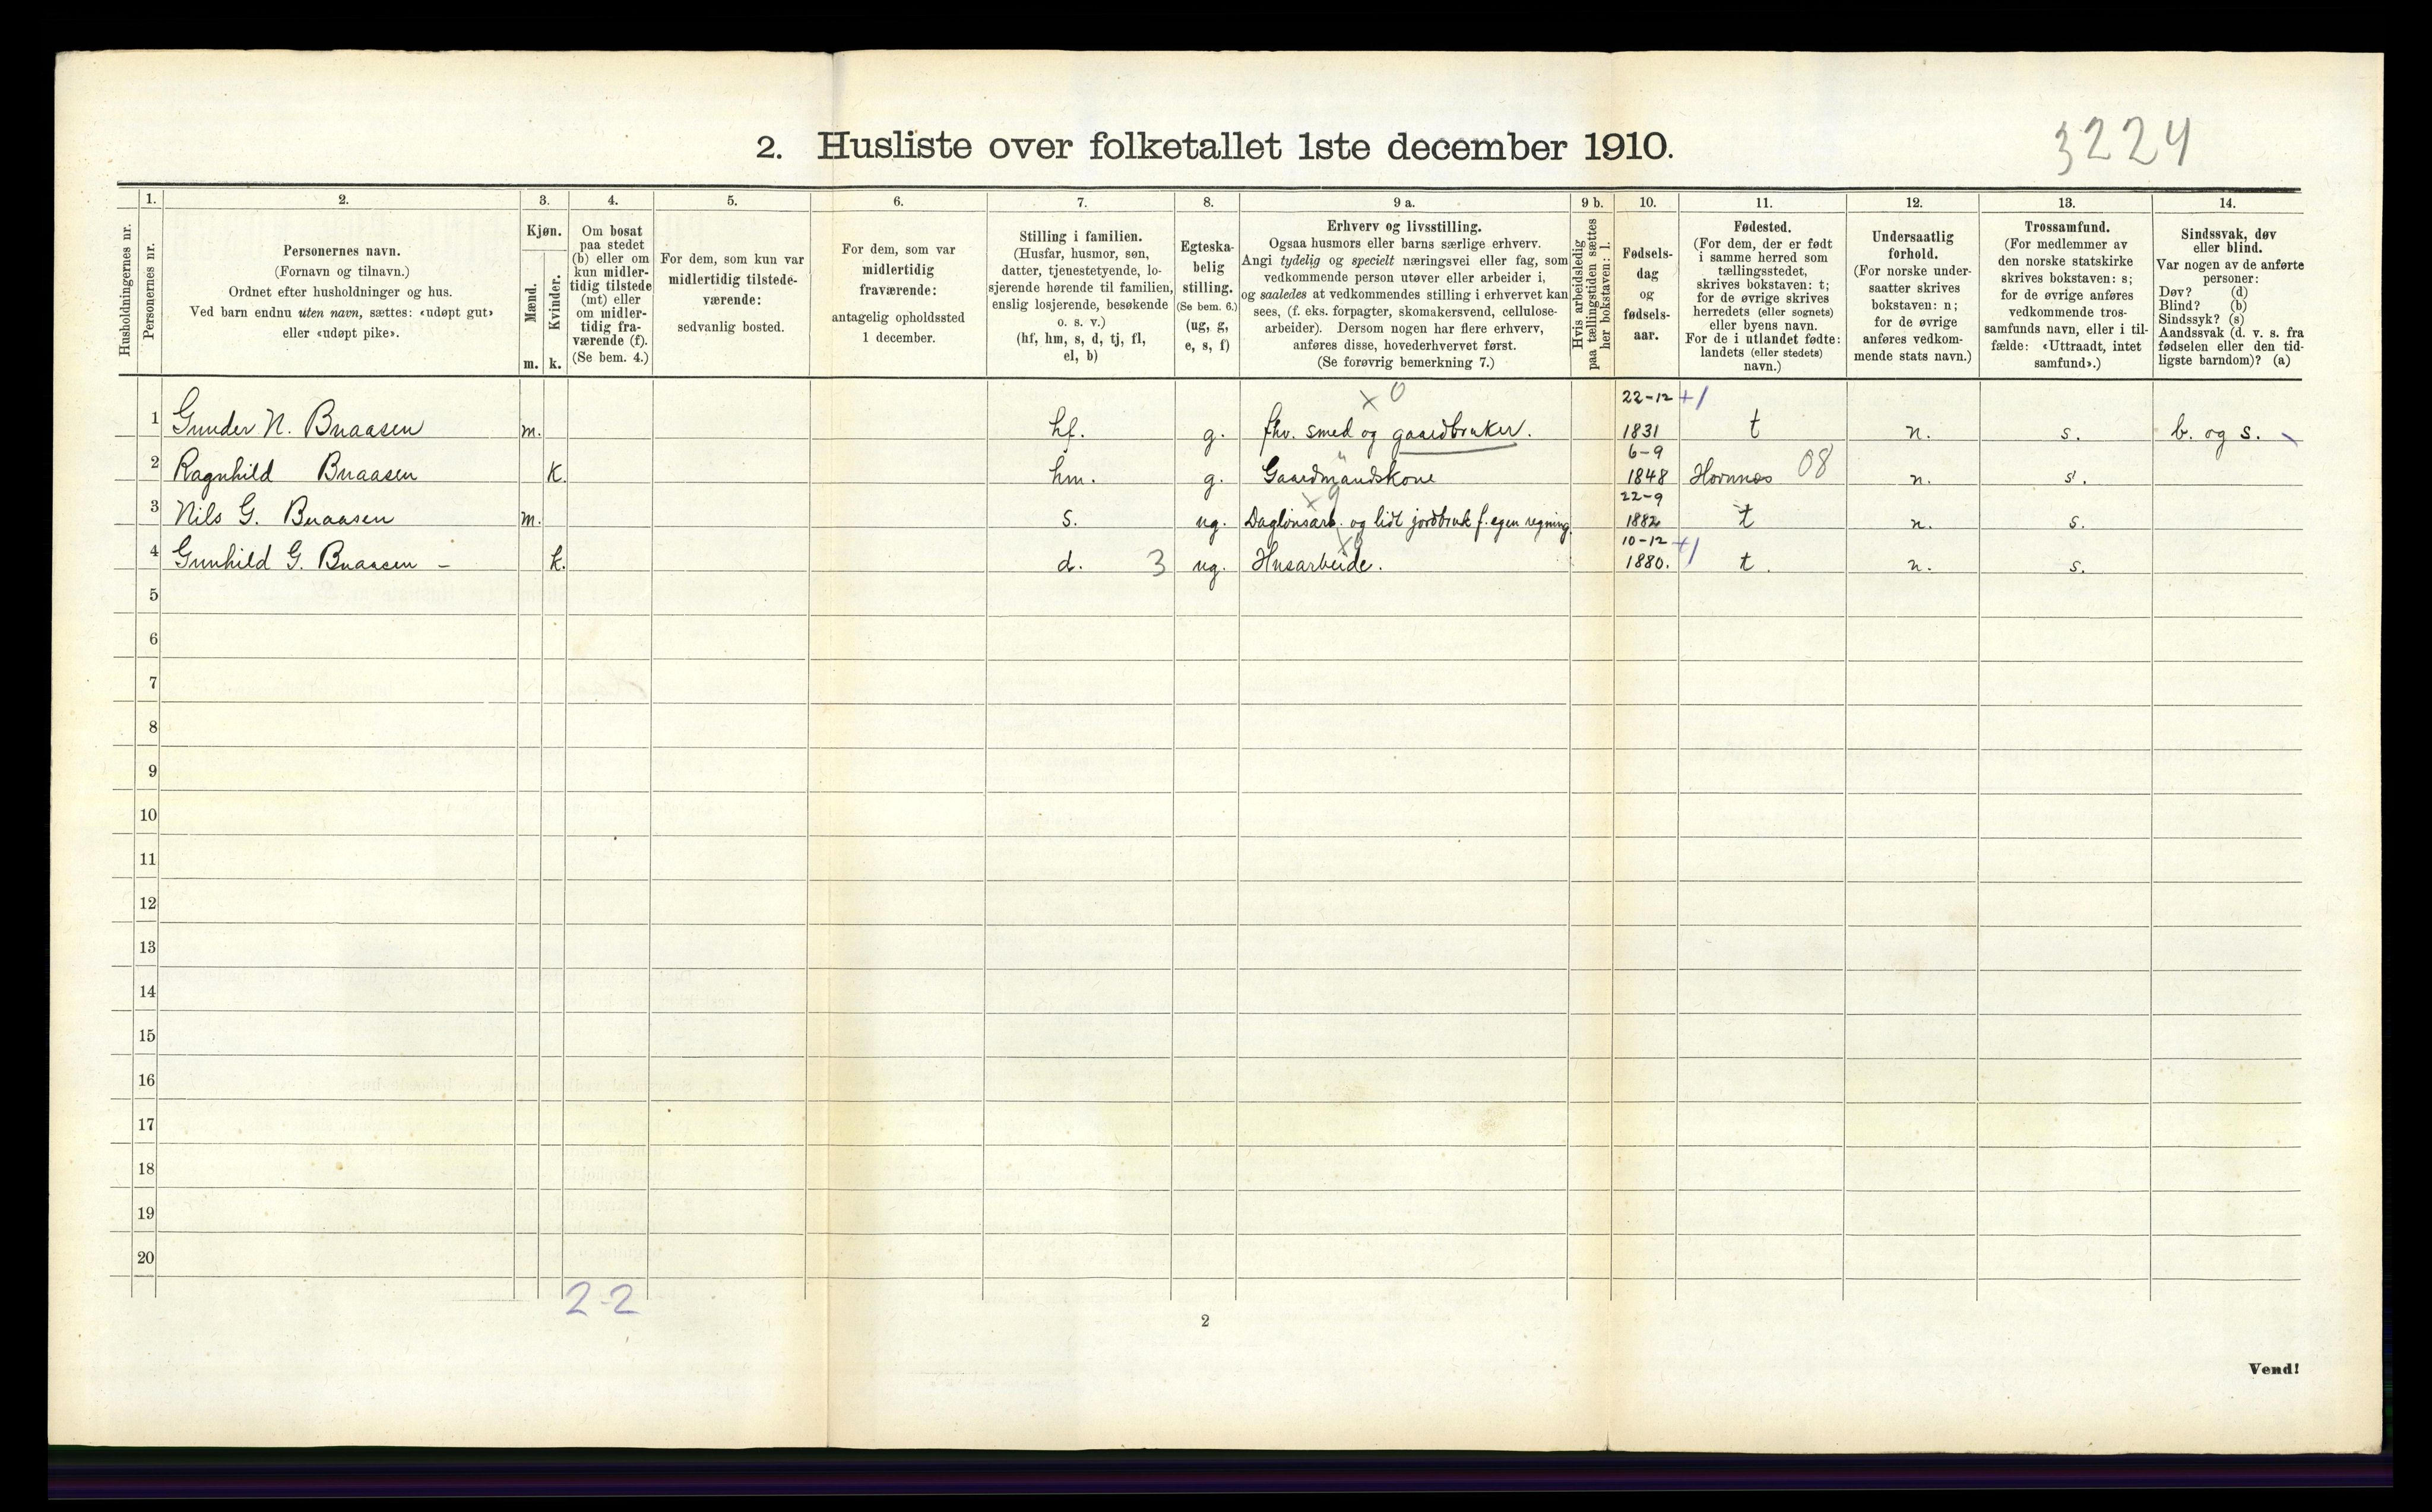 3224
2. Husliste over folketallet 1ste december 1910.
Husholdningernes nr.
1.
Personernes nr.
2.
Personernes navn.
(Fornavn og tilnavn.)
Ordnet efter husholdninger og hus.
Ved barn endnu uten navn, sættes: «udøpt gut»
eller «udøpt pike».
3.
Kjøn.
Mænd.
Kvinder.
m. k.
4.
Om bosat
paa stedet
(b) eller om
kun midler-
tidig tilstede
(mt) eller
om midler-
tidig fra-
værende (f).
(Se bem. 4.)
5.
For dem, som kun var
midlertidig tilstede-
værende:
sedvanlig bosted.
6.
For dem, som var
midlertidig
fraværende:
antagelig opholdssted
1 december.
7.
Stilling i familien.
(Husfar, husmor, søn,
datter, tjenestetyende, lo-
sjerende hørende til familien,
enslig losjerende, besøkende
o. s. v.)
(hf, hm, s, d, tj, fl,
el, b)
8.
Egteska-
belig
stilling.
(Se bem. 6.)
(ug, g,
e, s, f)
9 a.
Erhverv og livsstilling.
Ogsaa husmors eller barns særlige erhverv.
Angi tydelig og specielt næringsvei eller fag, som
vedkommende person utøver eller arbeider i,
og saaledes at vedkommendes stilling i erhvervet kan
sees, (f. eks. forpagter, skomakersvend, cellulose-
arbeider). Dersom nogen har flere erhverv,
anføres disse, hovederhvervet først.
(Se forøvrig bemerkning 7.)
9 b.
Hvis arbeidsledig
paa tællingstiden sættes
her bokstaven: l.
10.
Fødsels-
dag
og
fødsels-
aar.
11.
Fødested.
(For dem, der er født
i samme herred som
tællingsstedet,
skrives bokstaven: t;
for de øvrige skrives
herredets (eller sognets)
eller byens navn.
For de i utlandet fødte:
landets (eller stedets)
navn.)
12.
Undersaatlig
forhold.
(For norske under-
saatter skrives
bokstaven: n;
for de øvrige
anføres vedkom-
mende stats navn.)
13.
Trossamfund.
(For medlemmer av
den norske statskirke
skrives bokstaven: s;
for de øvrige anføres
vedkommende tros-
samfunds navn, eller i til-
fælde: «Uttraadt, intet
samfund».)
14.
Sindssvak, døv
eller blind.
Var nogen av de anførte
personer:
Døv? (d)
Blind? (b)
Sindssyk? (s)
Aandssvak (d. v. s. fra
fødselen eller den tid-
ligste barndom)? (a)
x 0 22-12 +1
1 Gunder N. Braasen m. hf. g. fhv. smed og gaardbruker. 1831 t n. s. b. og s.
6-9
2 Ragnhild Braasen k. hm. g. Gaardmandskone 1848 Hornnes 08 n. s.
x 9 22-9
3 Nils G. Braasen m. s. ug. Daglönsarb. og lidt jordbruk f. egen regning. 1882 t n. s.
10-12 +1
4 Gunhild G. Braasen - k. d. 3 ug. Husarbeide. 1880. t. n. s.
5
6
7
8
9
10
11
12
13
14
15
16
17
18
19
20
2-2
2
Vend!